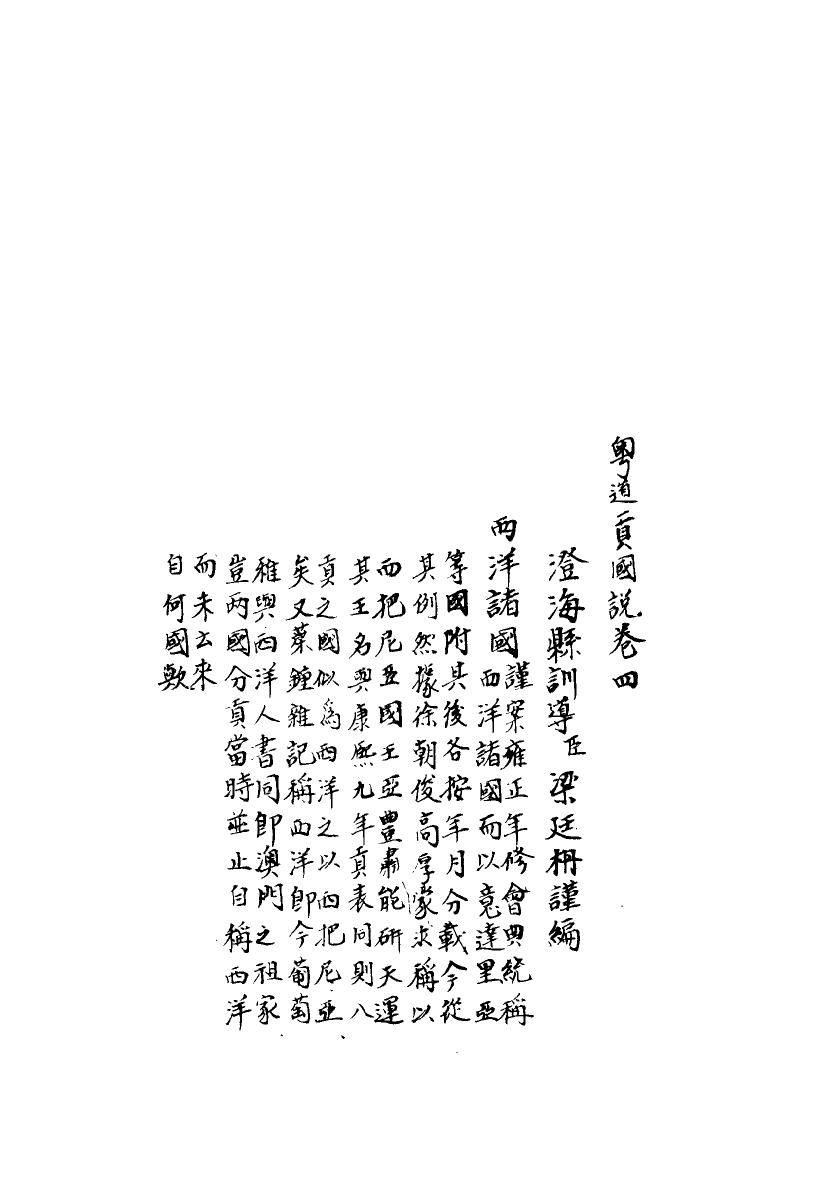 粵道貢國說卷四
澄海縣訓導臣梁廷枏謹編
西洋諸國謹案雍正年修會典統稱
西洋諸國而以意達里亞
等國附其後各按年月分載今從
其例然據徐朝俊高厚蒙求稱以
西把尼亞國王亞豊肅能研天運
其王名與康熙九年貢表同則入
貢之國似爲西洋之以西把尼亞
矣又葉鍾雜記稱西洋即今葡萄
雅與西洋人書同即澳門之祖家
豈两國分貢當時並止自稱西洋
而未云來
自何國歟